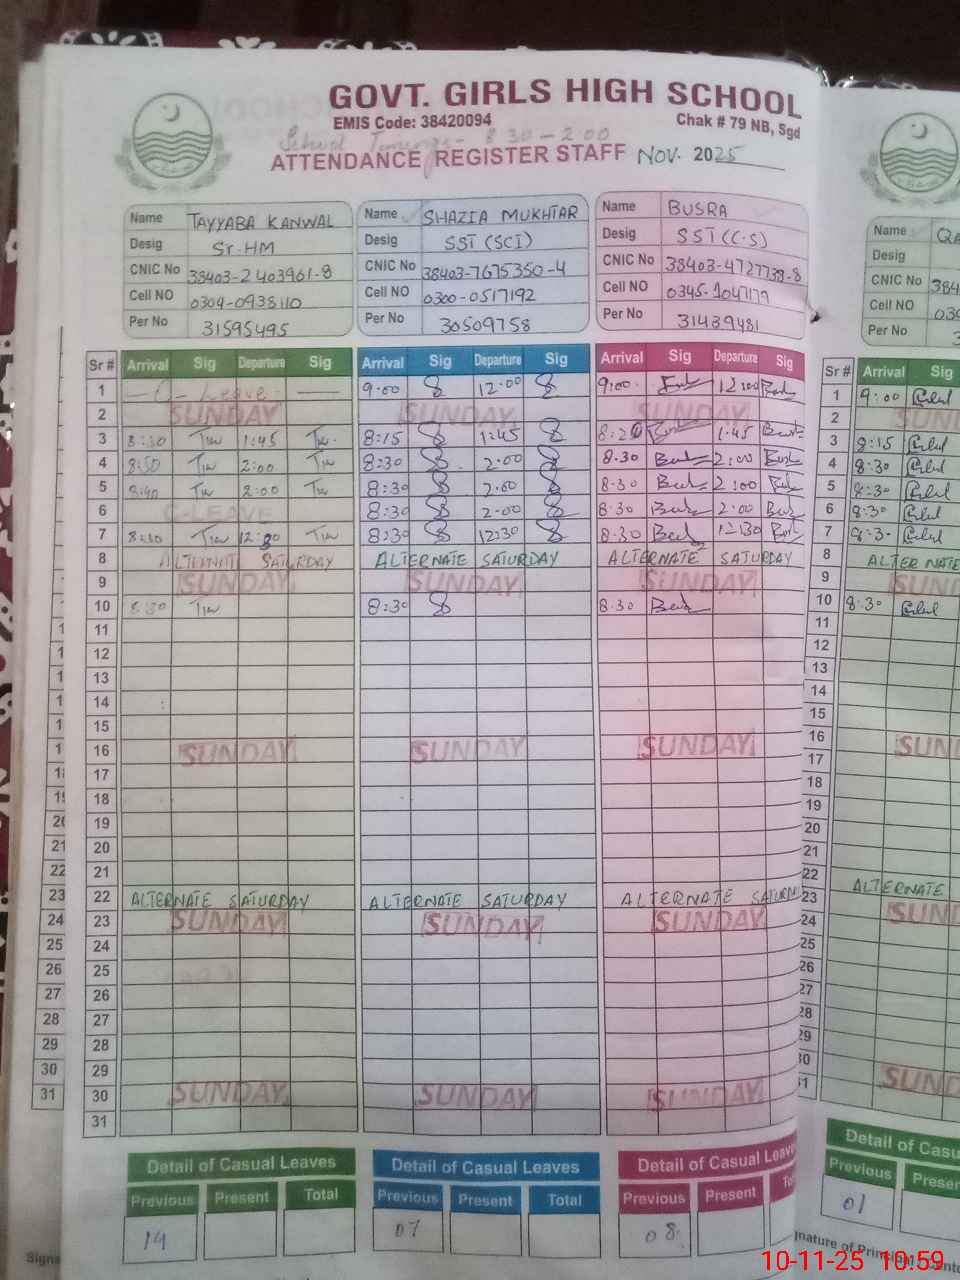 GOVT. GIRLS HIGH SCHOOL
EMIS Code: 38420094
Chak # 79 NB, Sgd
School Timings- 8 30-2:00
ATTENDANCE REGISTER STAFF NOV. 2025
Name TAYYABA KANWAL
Desig Sr. HM
CNIC No 38403-2403961-8
Cell NO 0304-0938110
Per No 31595495
Name SHAZIA MUKHTAR
Desig SST (SCI)
CNIC No 38403-7675350-4
Cell NO 0300-0517192
Per No 30509758
Name BUSRA
Desig SST (C.S)
CNIC No 38403-4727738-8
Cell NO 0345-1047179
Per No 31439481
Name QA
Desig
CNIC No 384
Cell NO 030
Per No 3
Sr # Arrival Sig Departure Sig Arrival Sig Departure Sig Arrival Sig Departure Sig Sr # Arrival Sig
1 C- Leave 9:00 12:00 9:00 12:00 1 9:00
2 SUNDAY SUNDAY SUNDAY 2 SUNDAY
3 8:30 1:45 8:15 1:45 1:45 3 8:15
4 8:30 2:00 8:30 2:00 8:30 2:00 4 8:30
5 2:00 8:30 2:00 8:30 2:00 5 8:30
6 C-LEAVE 8:30 2:00 8:30 2:00 6 8:30
7 8:30 12:30 8:30 12:30 8:30 12:30 7 8:30
8 ALTERNATE SATURDAY ALTERNATE SATURDAY ALTERNATE SATURDAY 8 ALTERNATE
9 SUNDAY SUNDAY SUNDAY 9 SUNDAY
10 8:30 8:30 8:30 10 8:30
11 11
12 12
13 13
14 14
15 15
16 SUNDAY SUNDAY SUNDAY 16 SUN
17 17
18 18
19 19
20 20
21 21
22 ALTERNATE SATURDAY ALTERNATE SATURDAY ALTERNATE SATURDAY 22 ALTERNATE
23 SUNDAY SUNDAY SUNDAY 23 SUND
24 24
25 25
26 26
27 27
28 28
29 29
30 SUNDAY SUNDAY SUNDAY 30 SUND
31 31
Detail of Casual Leaves
Previous Present Total
14
Detail of Casual Leaves
Previous Present Total
07
Detail of Casual Leav
Previous Present To
08
Detail of Casu
Previous Presen
01
Signa
nature of Prinsipal
10-11-25 10:59